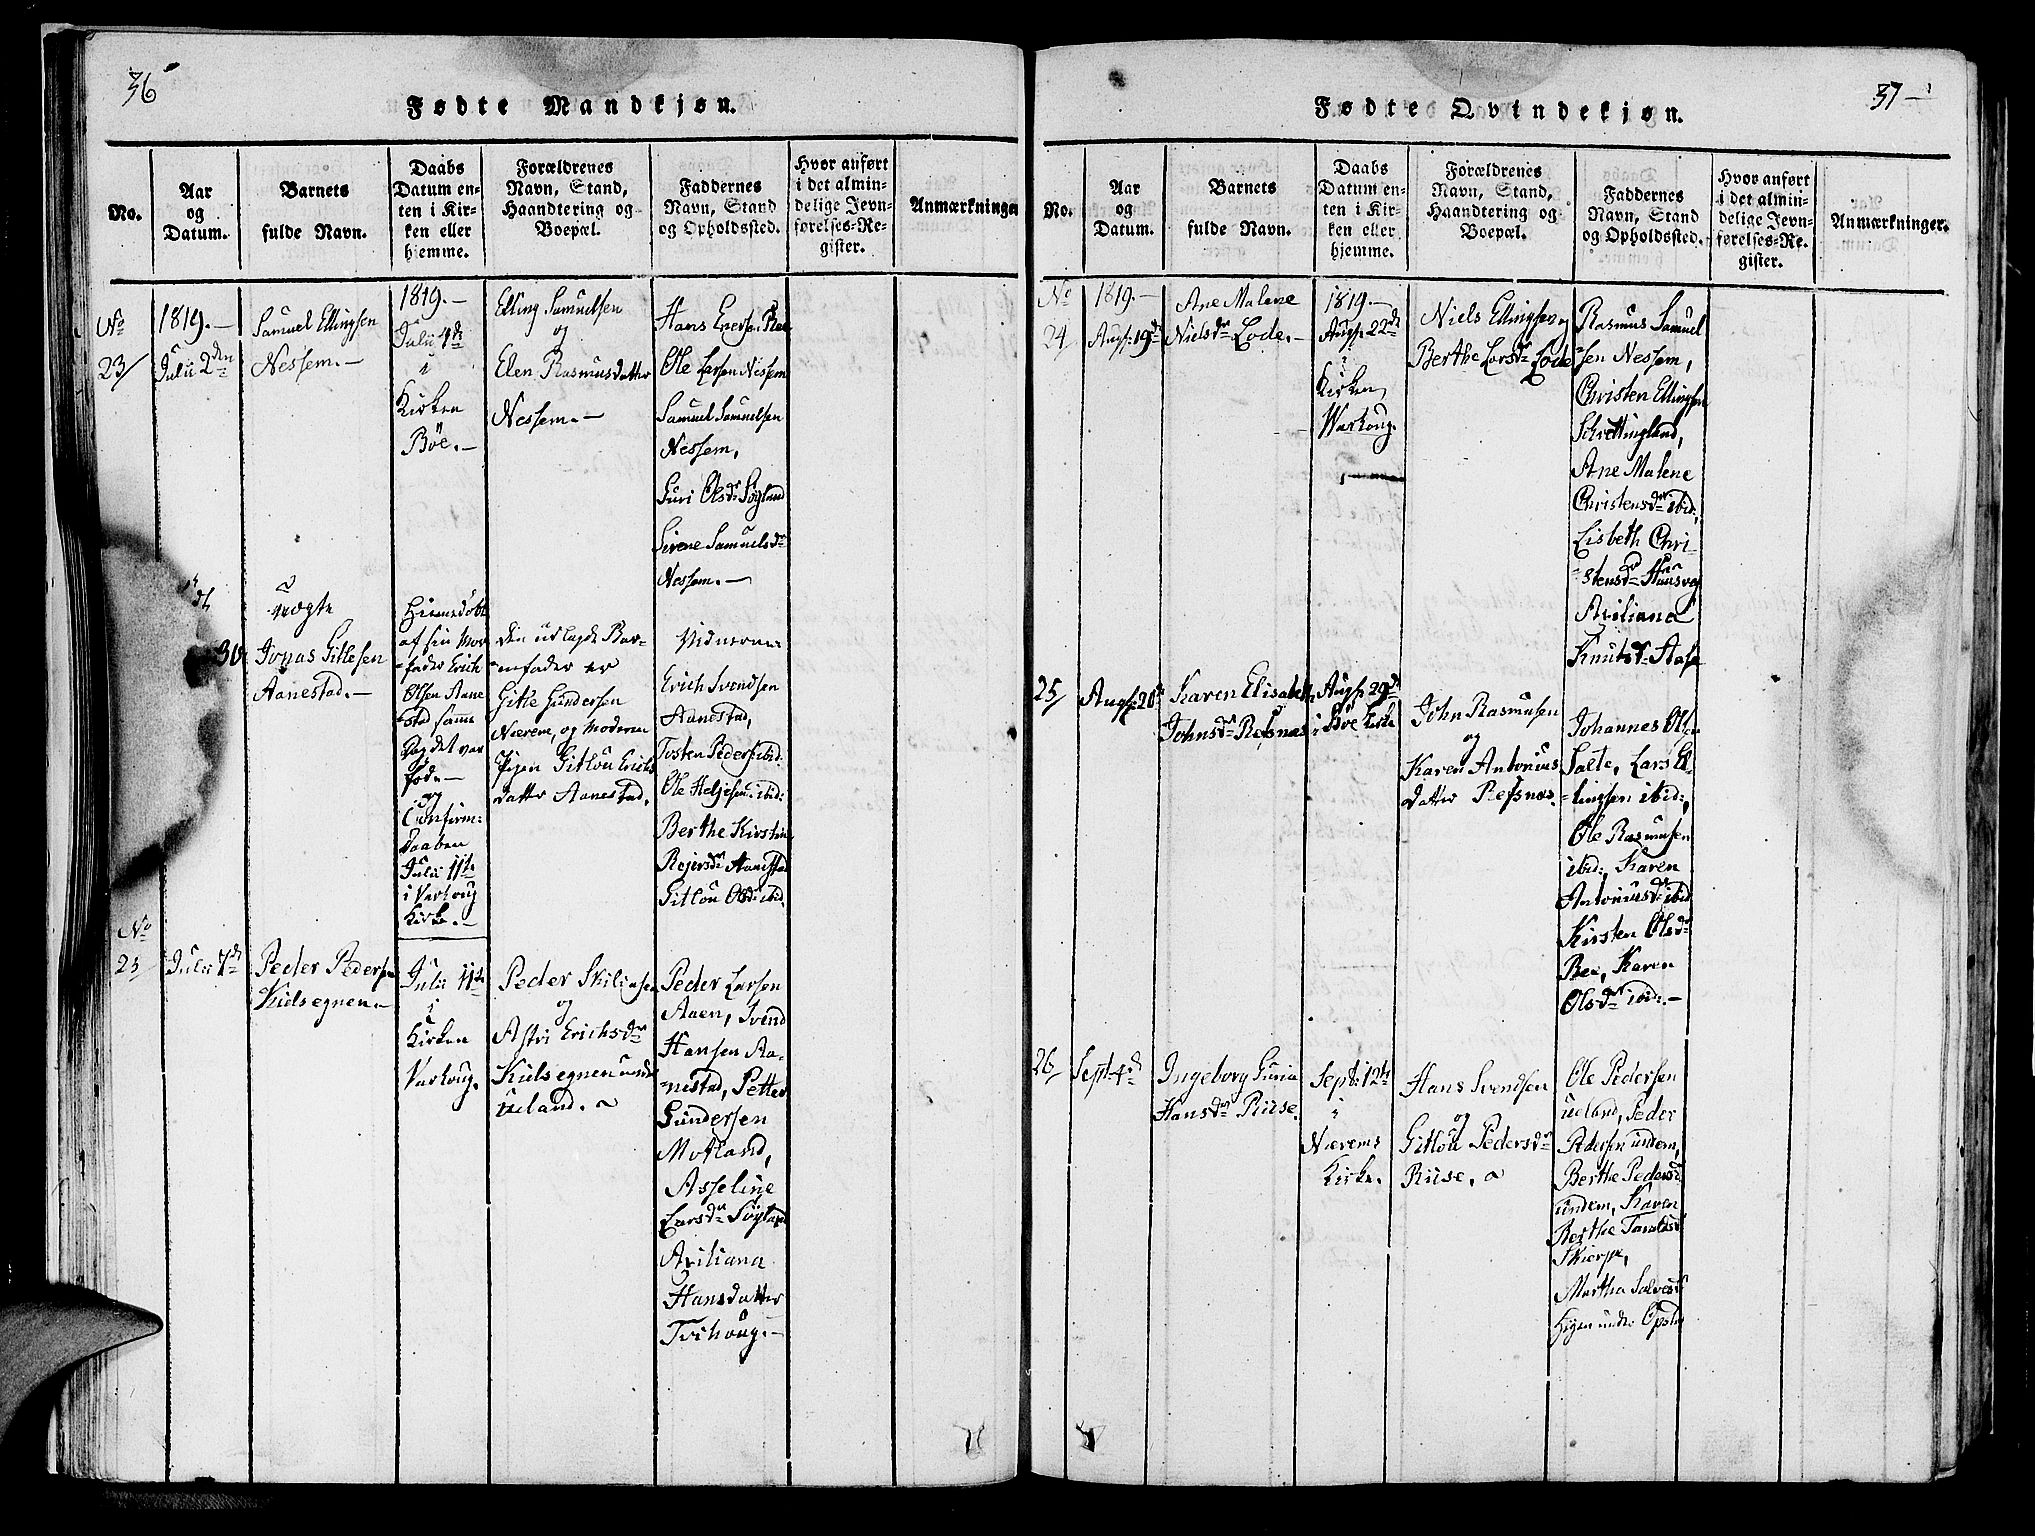 36
Fødte Mandkjøn.
No.
Aar
og
Datum.
Barnets
fulde Navn.
Daabs
Datum en-
ten i Kir-
ken eller
hjemme.
Forældrenes
Navn, Stand,
Haandtering og
Boepæl.
Faddernes
Navn, Stand
og Opholdssted.
Hvor anført
i det almin-
delige Jevn-
førelses-Re-
gister.
Anmærkninger
No
23/
1819.—
Julii 2den
Samuel Ellingsen
Nessem.—
1819.—
Julii 4de
i
Kirken
Böe.—
Elling Samuelsen
og
Elen Rasmusdatter
Nessem.—
Hans Enersen
Ole Larsen Nessem
Samuel Samuelsen
Nessem,
Guri Olsdr Søyland
Sirene Samuelsdr
Nessem.—
30
uægte
Jonas Gitlesen
Aanestad.—
Hiemedöbt
af sin Mor-
fader Erich
Olsen Aane
stad samme
Dag det var
föd.—
og
Confirm:
Daaben
Julii 11te
i Varhoug
Kirke.—
Den udlagde Bar-
nefader er
Gitle Gundersen
Nærem, og Moderen
Pigen Gitlou Erichs
datter Aanestad.
Vidnerne
Erich Svendsen
Aanestad,
Tosten Peders: ibid:
Ole Heljesen ibid:
Berthe Kirstine
Rejersdr Aanestad
Gitlou Olsdr ibid:
No
25
Julii 7de
Peder Pedersen
Kidsegnen.
Julii 11te
i
Kirken
Varhoug.
Peder
og
Astri Erichsdr
Kidsegnen under
Ueland.
Peder Larsen
Aaen, Svend
Hansen Aa-
nestad, Petter
Gundersen
Motland,
Asseline
Larsdr Søyland
Axiliana
Hansdatter
Tvihoug.—
37—
Fødte Qvindekjøn.
No.
Aar
og
Datum.
Barnets
fulde Navn.
Daabs
Datum en-
ten i Kir-
ken eller
hjemme.
Forældrenes
Navn, Stand,
Haandtering og
Boepæl.
Faddernes
Navn, Stand
og Opholdssted.
Hvor anført
i det almin-
delige Jevn-
førelses-Re-
gister.
Anmærkninger.
No
24
1819.—
Augs: 19de
Ane Malene
Nielsdr Lode.—
1819.—
Augs: 22de
i
Kirken
Warhoug.
Niels Ellingsen og
Berthe Larsdr Lode
Rasmus Samuel
sen Nessem,
Christen Ellingsen
Skrettingland,
Ane Malene
Christensdr ibid:,
Lisbeth Chri-
stensdr
Axiliana
Knutsdr
25/
Augs: 26de
Karen Elisabeth
Johnsdr Refsnæs
Augs: 29de
i Böe Kirke
John Rasmusen
og
Karen Antonius
datter Refsnæs.
Johannes Olsen
Salte, Lars
ibid:,
Ole Rasmusen
ibid:, Karen
Antoniusdr ibid
Kirsten Olsdr
Bøe, Karen
Olsdr ibid:.—
26/
Sept: 4de
Ingeborg Guria
Hansdr Riise.
Sept: 12te
i
Nærems
Kirke.
Hans Svendsen
og
Gitlou Pedersdr
Riise.
Ole Pedersen
Ueland, Peder
Pedersen Undem,
Berthe Pedersdr
Undem, Karen
Berthe
Skierpe,
Martha
under Opstad